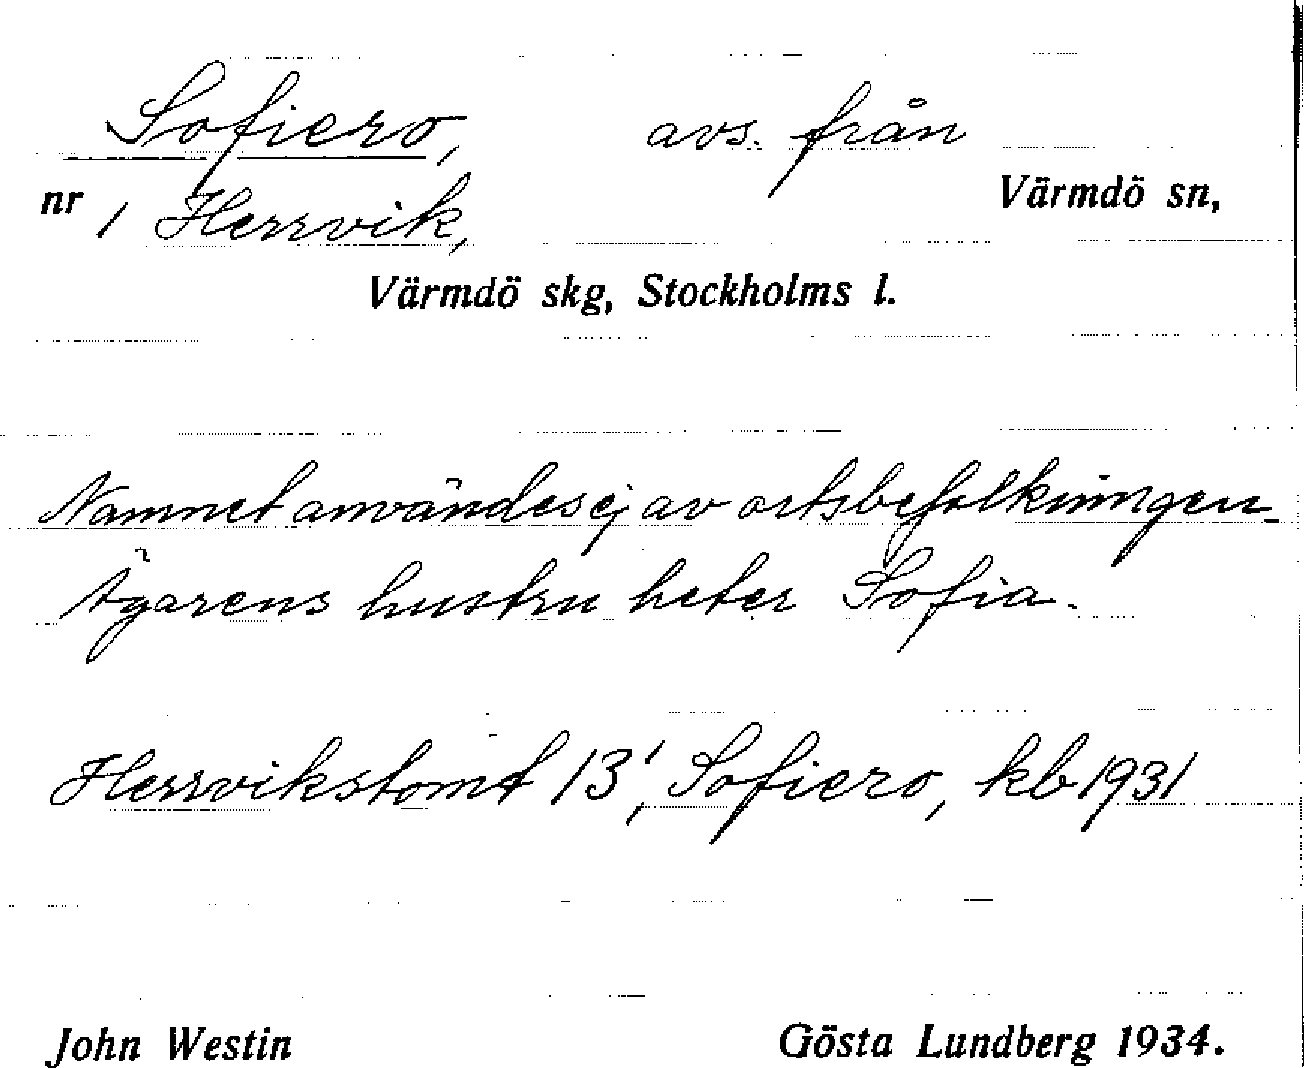 Sofiero, avs. från
nr 1 Herrvik, Värmdö sn,
Värmdö skg, Stockholms l.
Namnet användes ej av ortsbefolkningen.
Ägarens hustru heter Sofia.
Herrvikstomt 13¹, Sofiero, kb 1931
John Westin Gösta Lundberg 1934.